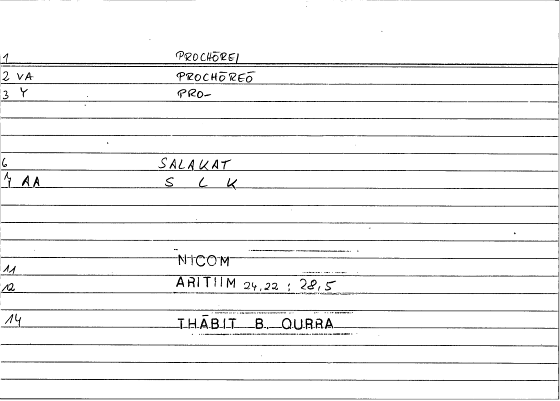 1 PROCHŌREI
2 VA PROCHŌREŌ
3 Y PRO-
6 SALAKAT
7 AA S L K
11 NICOM
12 ARITIIM 24,22 : 28,5
14 THĀBIT B. QURRA